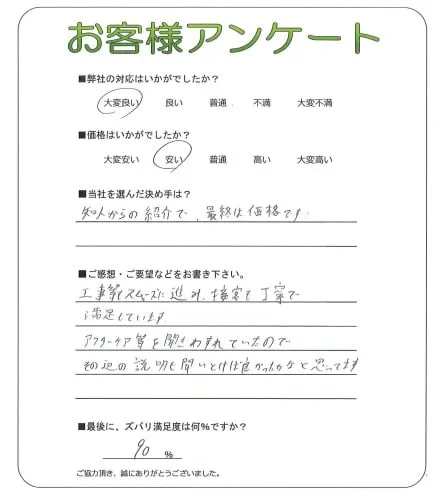 お客様アンケート
■弊社の対応はいかがでしたか？
大変良い 良い 普通 不満 大変不満
■価格はいかがでしたか？
大変安い 安い 普通 高い 大変高い
■当社を選んだ決め手は？
知人からの紹介で、最終は価格です
■ご感想・ご要望などをお書き下さい。
工事等もスムーズに進み、接客も丁寧で
満足しています
アフターケア等を聞きわすれていたので
その辺の説明も聞いとけば良かったかなと思ってます
■最後に、ズバリ満足度は何%ですか？
90 %
ご協力頂き、誠にありがとうございました。